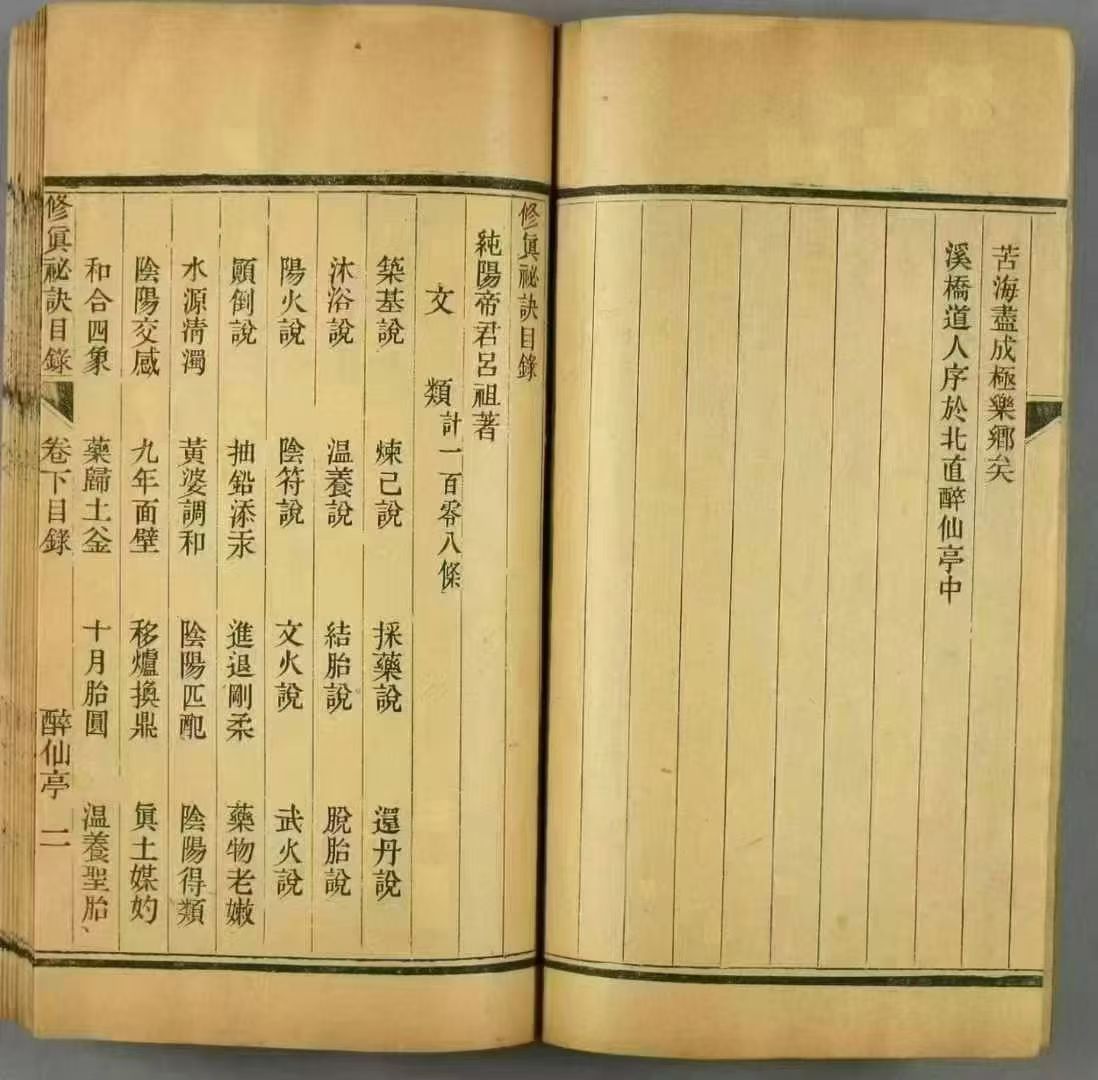 苦海盡成極樂鄉矣
溪橋道人序於北直醉仙亭中
修眞祕訣目錄
純陽帝君呂祖著
文 類 計一百零八條
築基說 煉己說 採藥說 還丹說
沐浴說 温養說 結胎說 脫胎說
陽火說 陰符說 文火說 武火說
顚倒說 抽鉛添汞 進退剛柔 藥物老嫩
水源淸濁 黃婆調和 陰陽匹配 陰陽得類
陰陽交感 九年面壁 移爐換鼎 眞土媒妁
和合四象 藥歸土釜 十月胎圓 温養聖胎、
修眞祕訣目錄 卷下目錄 醉仙亭 二